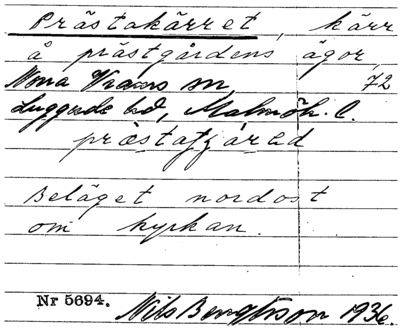 Prästakärret, kärr
å prästgårdens ägor,
Norra Vrams sn, 72
Luggude hd, Malmöh. l.
Beläget nordost
om kyrkan.
Nr 5694. Nils Bengtsson 1936.